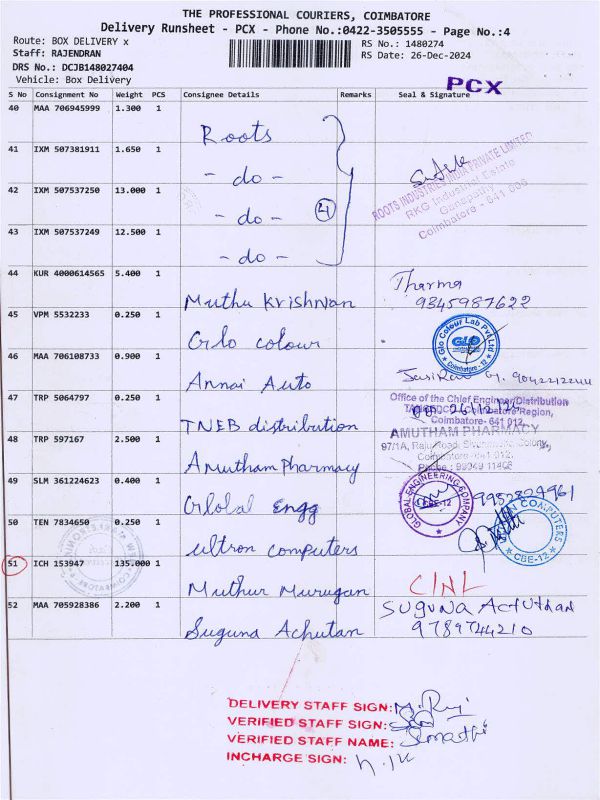 THE PROFESSIONAL COURIERS, COIMBATORE
Delivery Runsheet - PCX - Phone No.:0422-3505555 - Page No.:4
Route: BOX DELIVERY x
RS No.: 1480274
Staff: RAJENDRAN
RS Date: 26-Dec-2024
DRS No.: DCJB148027404
Vehicle: Box Delivery
PCX
S No Consignment No Weight PCS Consignee Details Remarks Seal & Signature
40 MAA 706945999 1.300 1 Roots
41 IXM 507381911 1.650 1 - do -
ROOTS INDUSTRIES INDIA PRIVATE LIMITED
RKG Industrial Estate
Ganapathy
Coimbatore - 641 006
42 IXM 507537250 13.000 1 - do - 4
43 IXM 507537249 12.500 1 - do -
44 KUR 4000614565 5.400 1 Muthu Krishnan Tharma 9345987622
45 VPM 5532233 0.250 1 Glo colour
Glo Colour Lab Pvt Ltd
GLO
Coimbatore - 12
46 MAA 706108733 0.900 1 Annai Auto
47 TRP 5064797 0.250 1 TNEB distribution
Office of the Chief Engineer/Distribution
Coimbatore Region,
Coimbatore- 641 012.
26/12/24
48 TRP 597167 2.500 1 Amutham Pharmacy
AMUTHAM PHARMACY
97/1A, Raju Road, Colony,
Coimbatore - 641 012.
49 SLM 361224623 0.400 1 Global Engg
GLOBAL ENGINEERING COMPANY
CBE-12
50 TEN 7834650 0.250 1 Ultron computers
COMPUTERS
CBE-12
51 ICH 153947 135.000 1 Muthur Murugan
52 MAA 705928386 2.200 1 Suguna Achutan Suguna Achuthan
9789744210
DELIVERY STAFF SIGN:
VERIFIED STAFF SIGN:
VERIFIED STAFF NAME:
INCHARGE SIGN: